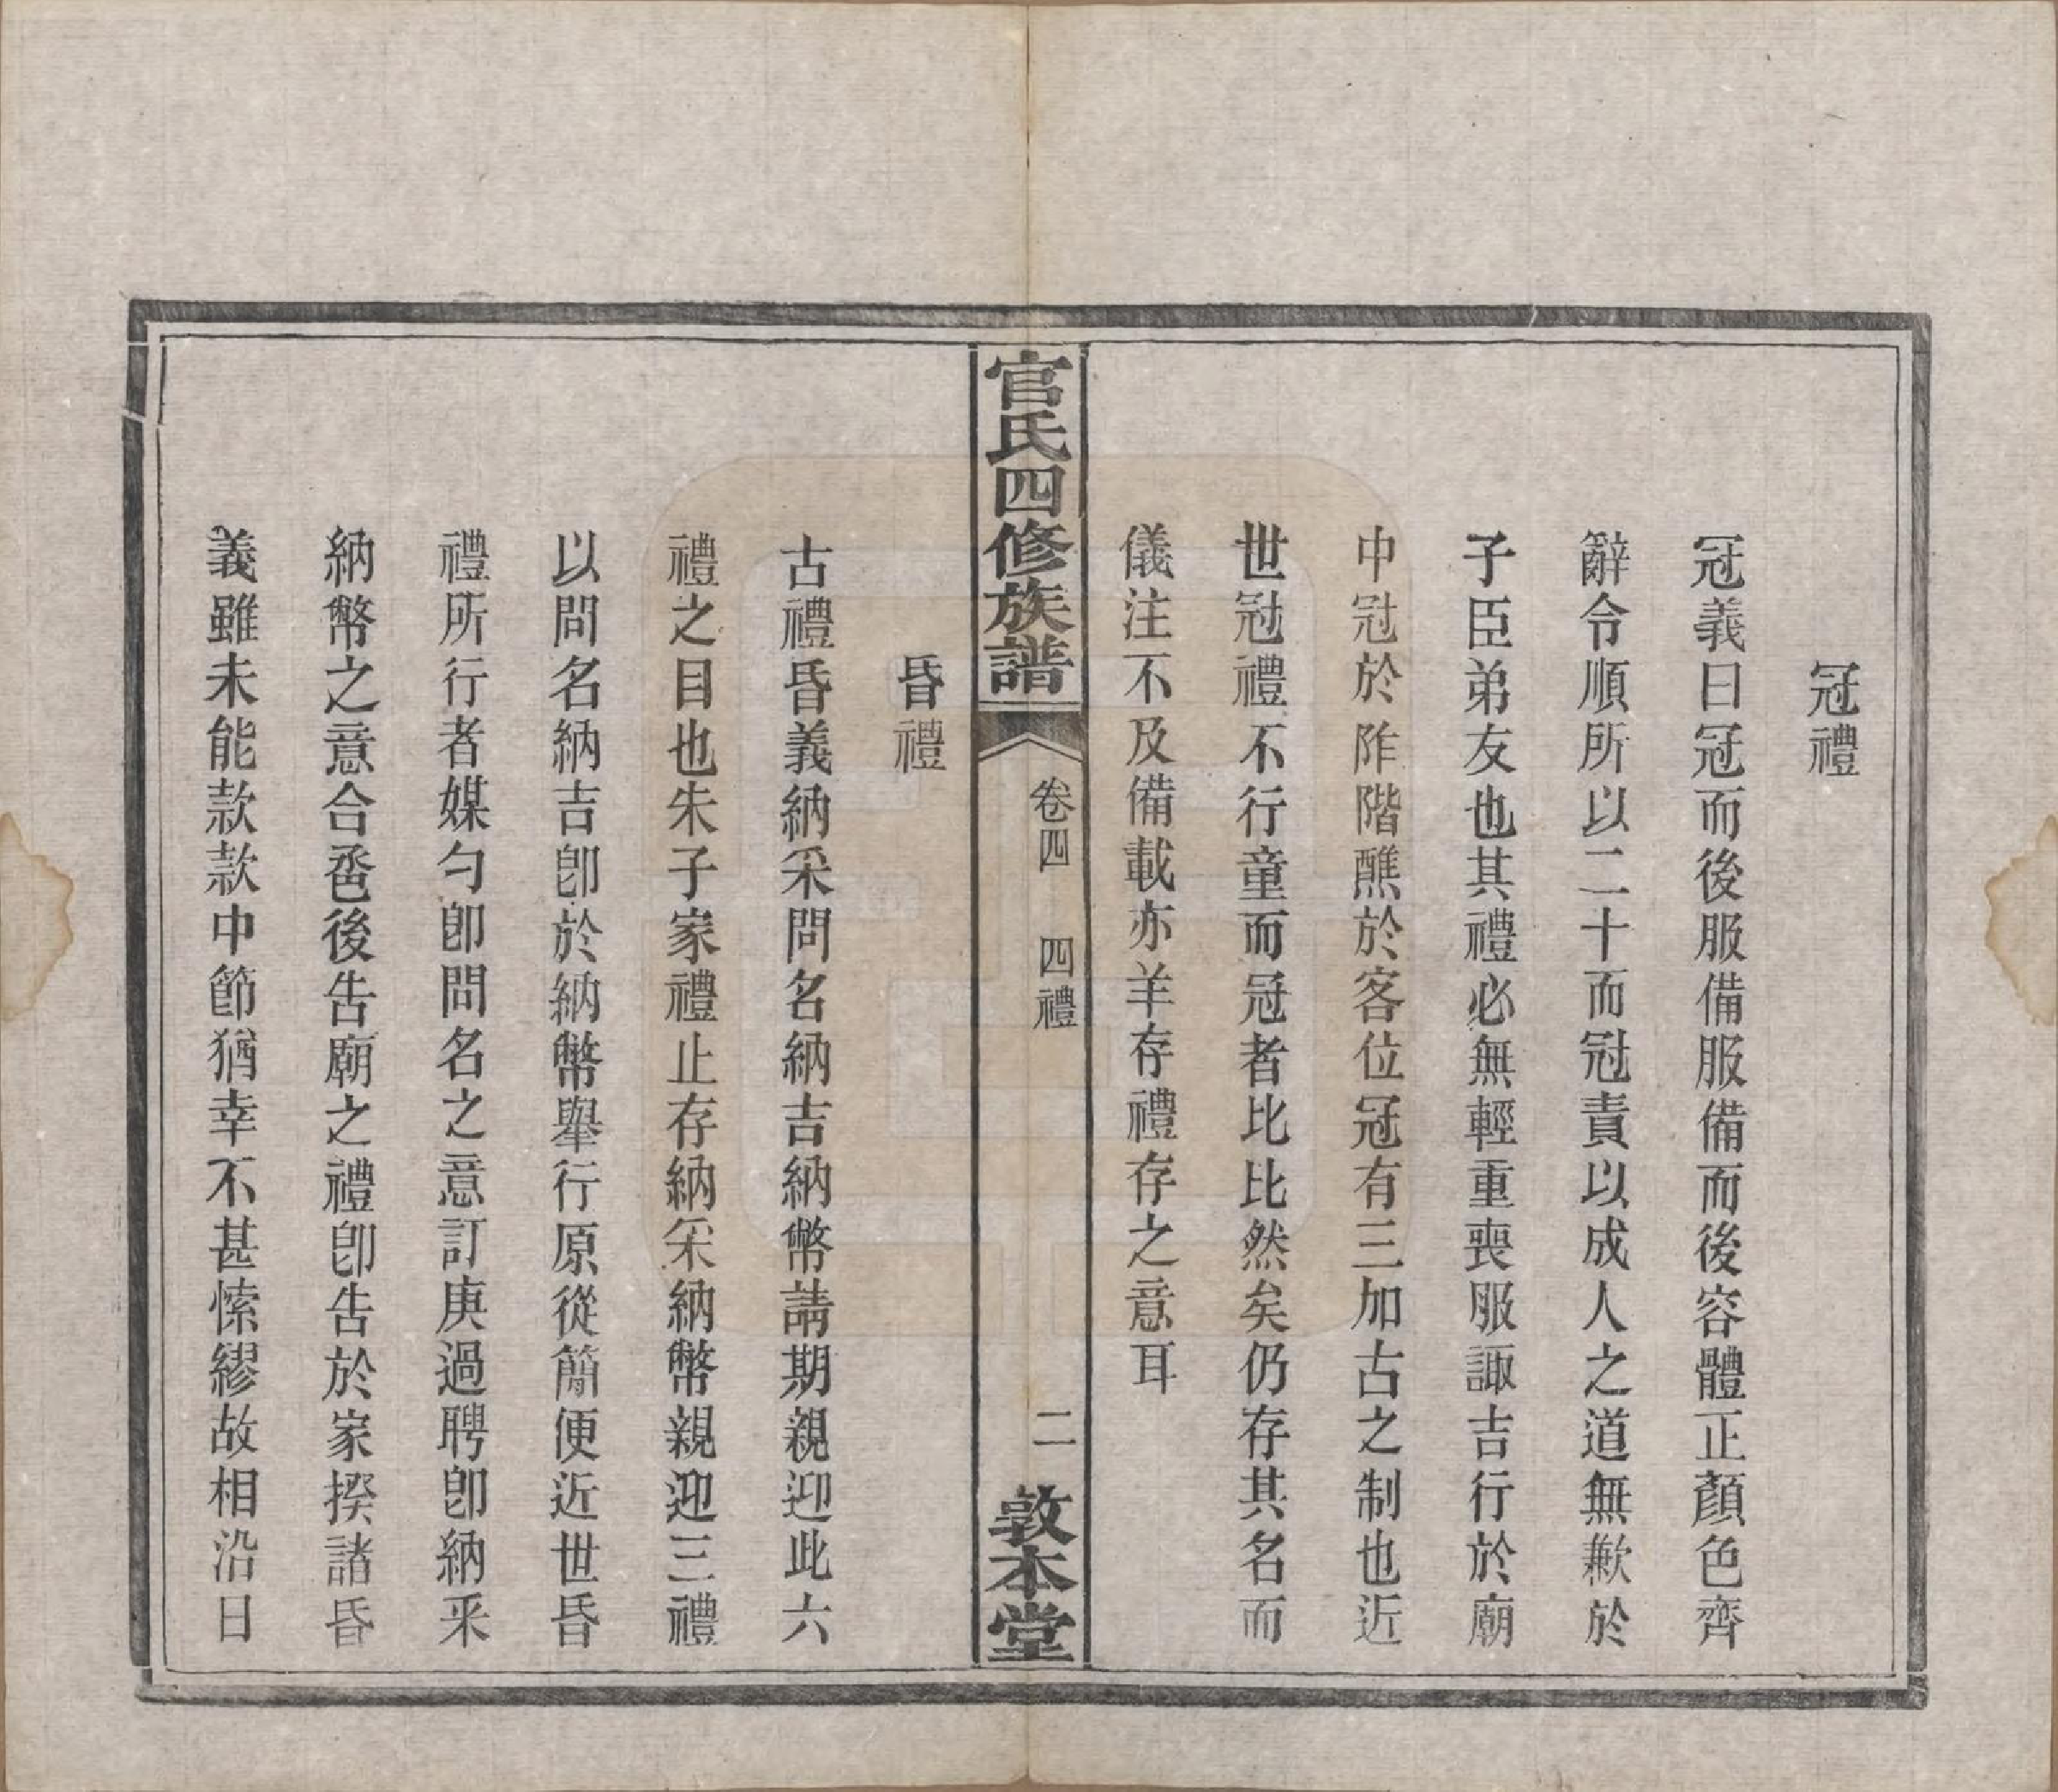 冠禮
冠義曰冠而後服備服備而後容體正顏色齊
辭令順所以二十而冠責以成人之道無歉於
子臣弟友也其禮必無輕重喪服諏吉行於廟
中冠於阼階醮於客位冠有三加古之制也近
世冠禮不行童而冠者比比然矣仍存其名而
儀注不及備載亦羊存禮存之意耳
官氏四修族譜
卷四
四禮
二
敦本堂
昏禮
古禮昏義納采問名納吉納幣請期親迎此六
禮之目也朱子家禮止存納采納幣親迎三禮
以問名納吉卽於納幣舉行原從簡便近世昏
禮所行者媒勺卽問名之意訂庚過聘卽納采
納幣之意合巹後告廟之禮卽告於家揆諸昏
義雖未能款款中節猶幸不甚愫繆故相沿日